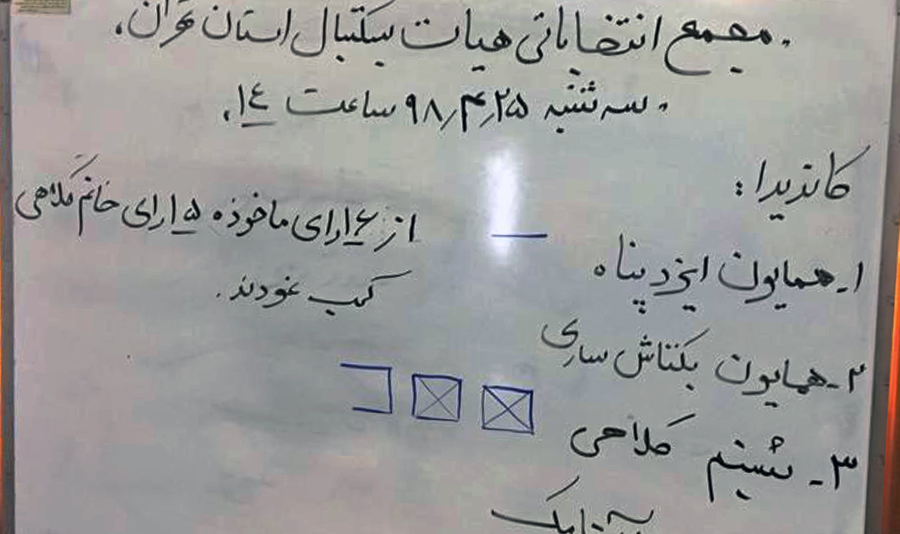 مجمع انتخاباتی هیات بسکتبال استان تهران.
سه شنبه ۹۸٫۴٫۲۵ ساعت ۱۴.
کاندیدا:
۱- همایون ایزدپناه
۲- همایون بکتاش ساری
۳- شبنم کلاهی
از ۱۶ ارای ماخوذه ۱۵ ارای خانم کلاهی
کسب نمودند.